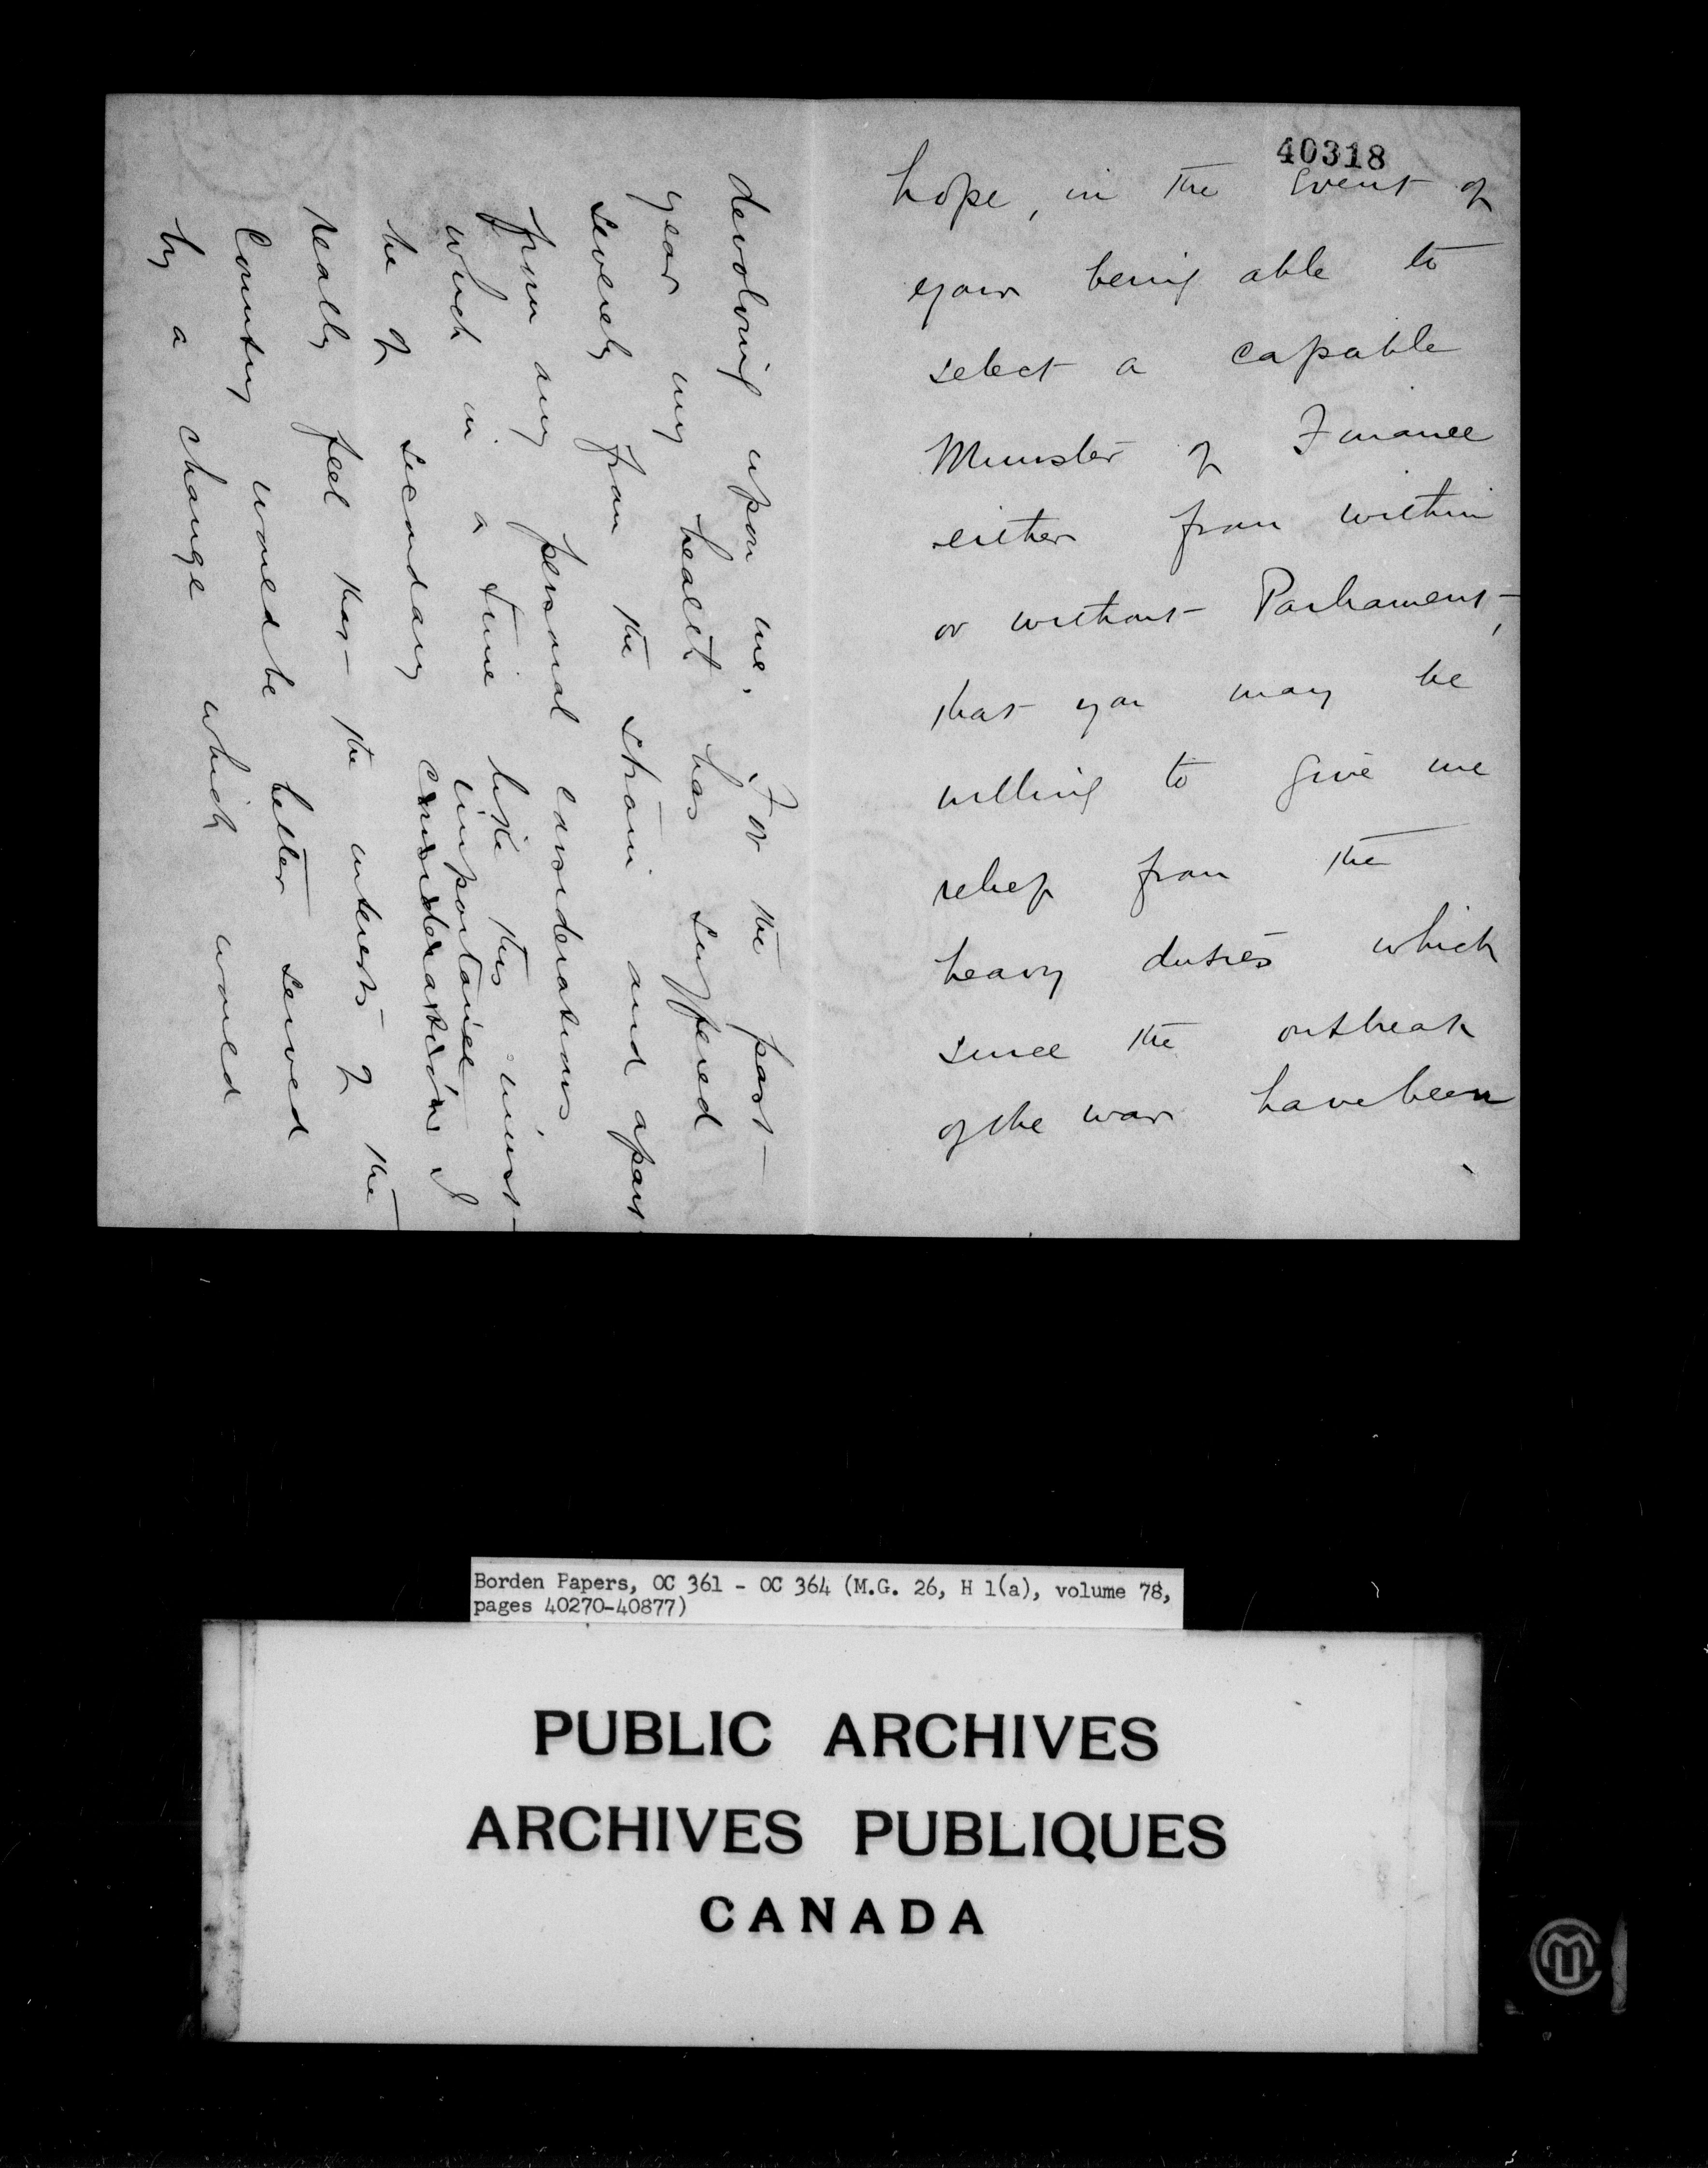 40318
hope, in the event of
your being able to
select a capable
Minister of Finance
either from within
or without Parliament,
that you may be
willing to give me
relief from the
heavy duties which
since the outbreak
of the war have been
devolving upon me. For the past
year my health has suffered
severely from the strain and apart
from any personal considerations
which in a time like this must
be of secondary importance
consideration I
really feel that the interests of the
Country would be better served
by a change which would
Borden Papers, OC 361 - OC 364 (M.G. 26, H 1(a), volume 78,
pages 40270-40877)
PUBLIC ARCHIVES
ARCHIVES PUBLIQUES
CANADA